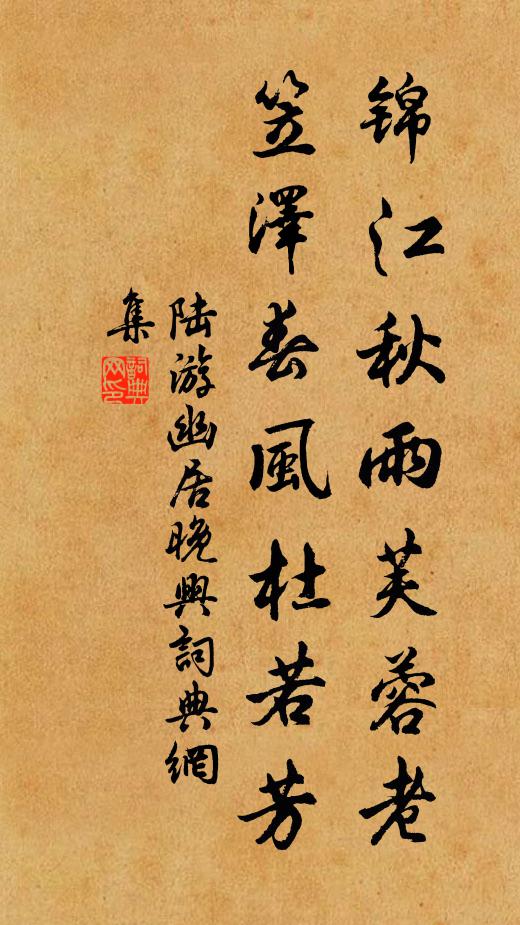 锦江秋雨芙蓉老
笠澤春風杜若芳
陆游幽居晚興詞典網
集
詞典
网印